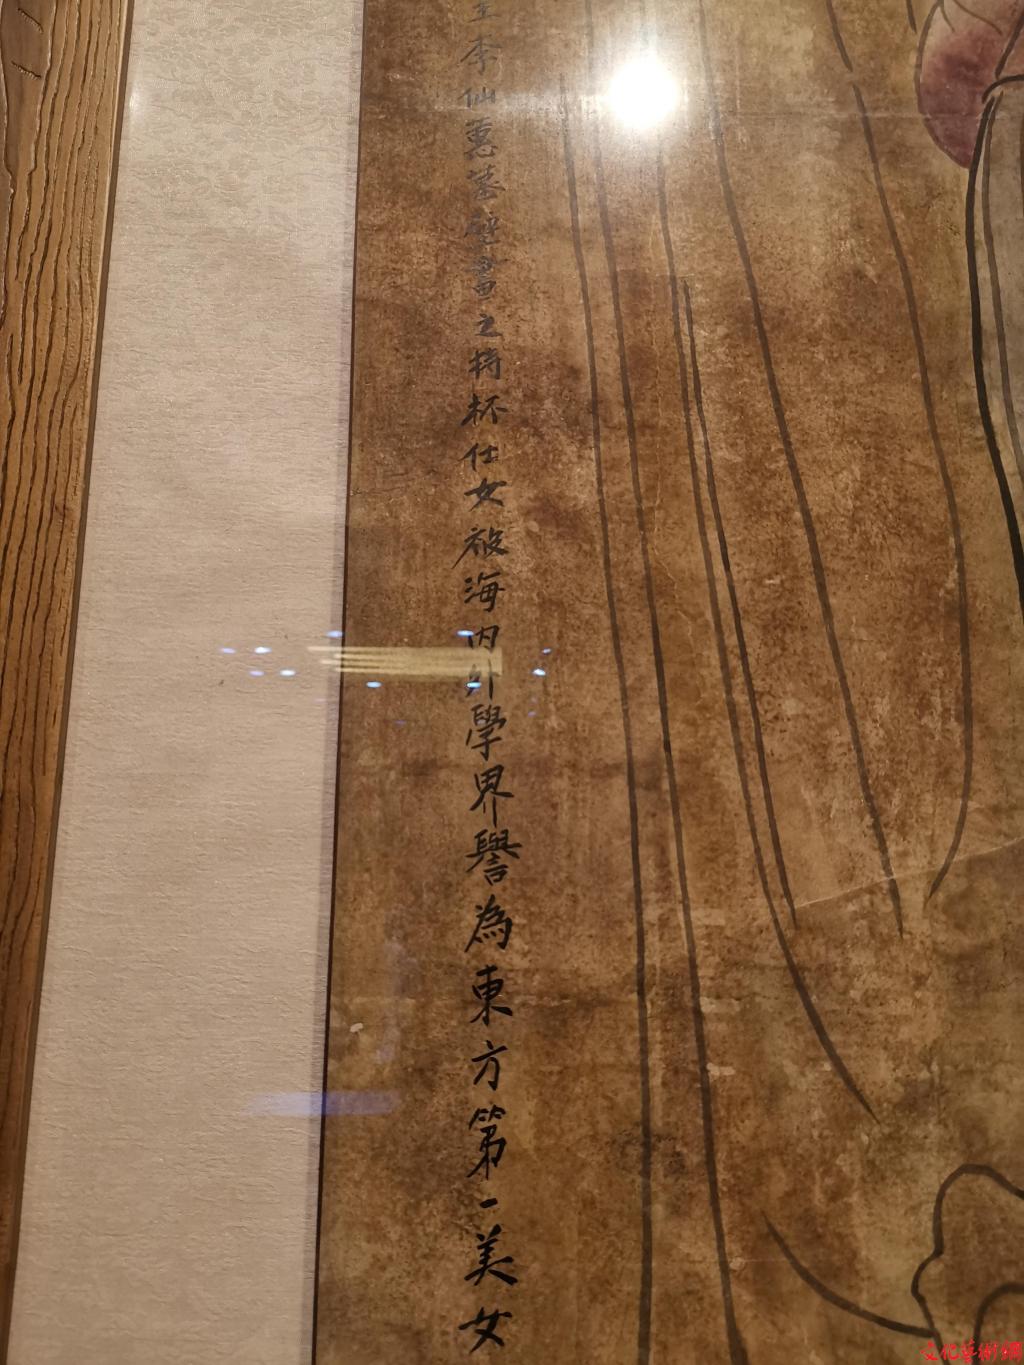 主李仙蕙墓壁畫之持杯仕女被海内外學界譽為東方第一美女
文化藝術網